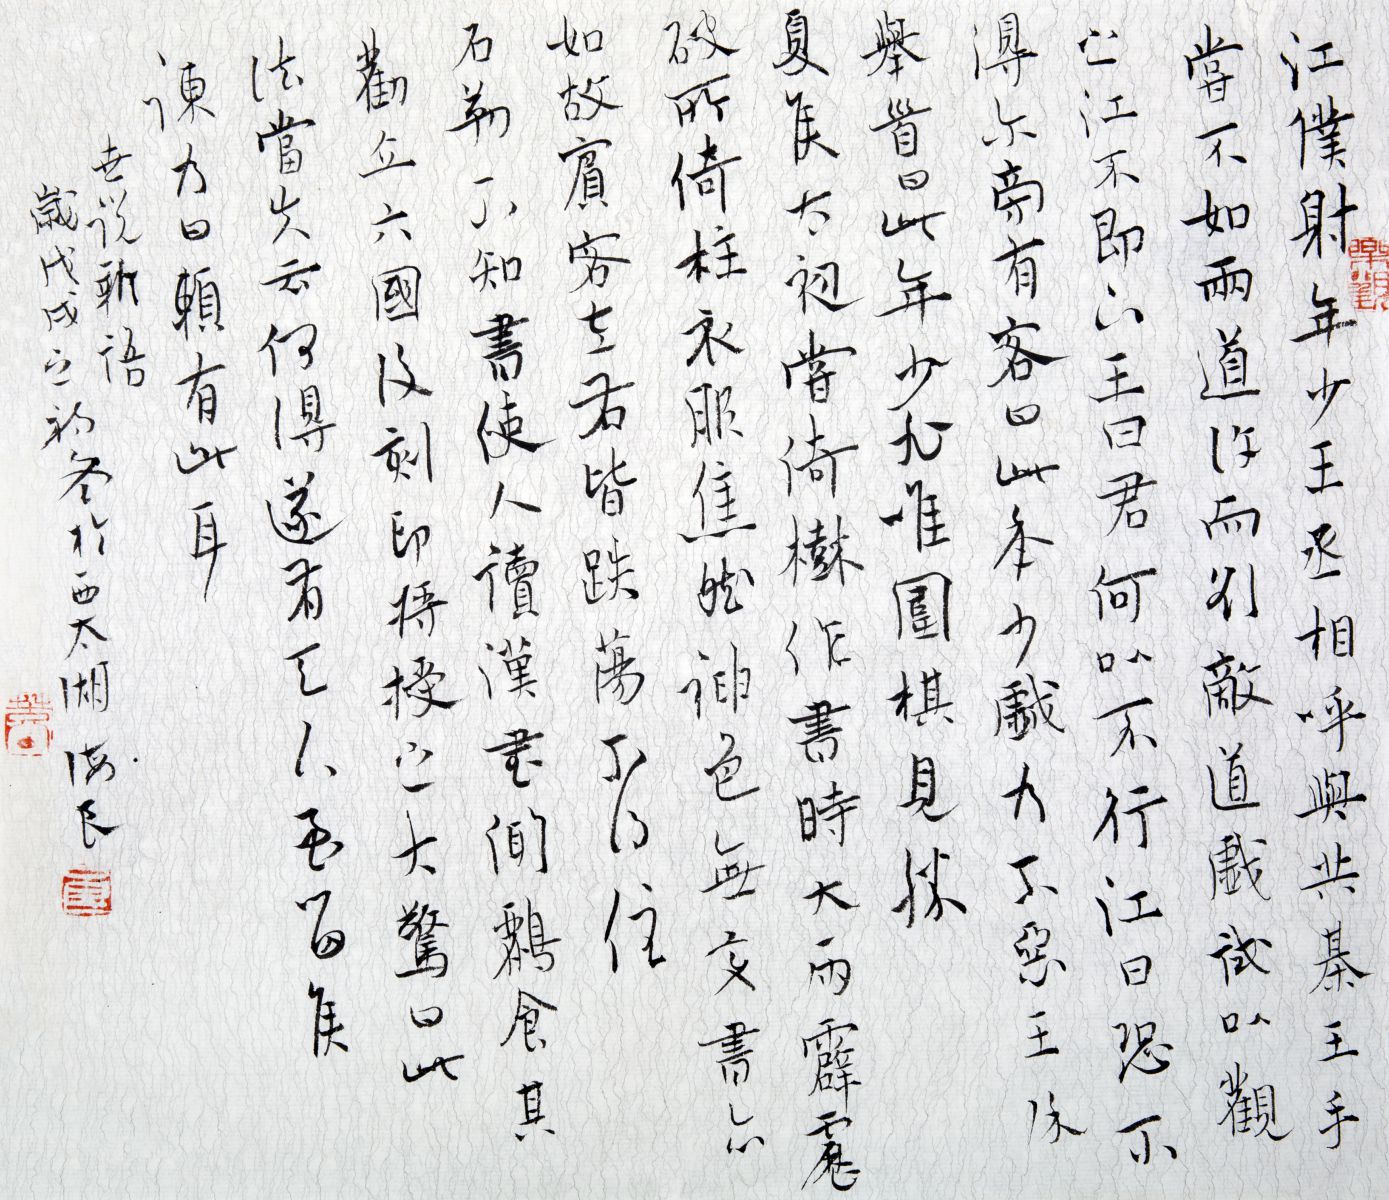 江僕射年少王丞相呼與共棊王手
嘗不如兩道許而欲敵道戲試以觀
之江不即下王曰君何以不行江曰恐不
得爾旁有客曰此年少戲乃不惡王徐
舉首曰此年少非唯圍棋見勝
夏侯太初嘗倚樹作書時大雨霹靂
破所倚柱衣服焦然神色無變書亦
如故賓客左右皆跌蕩不得住
石勒不知書使人讀漢書聞酈食其
勸立六國後刻印將授之大驚曰此
法當失云何得遂有天下至留侯
諫乃曰賴有此耳
世說新語
歲戊戌之初冬於西太湖海民